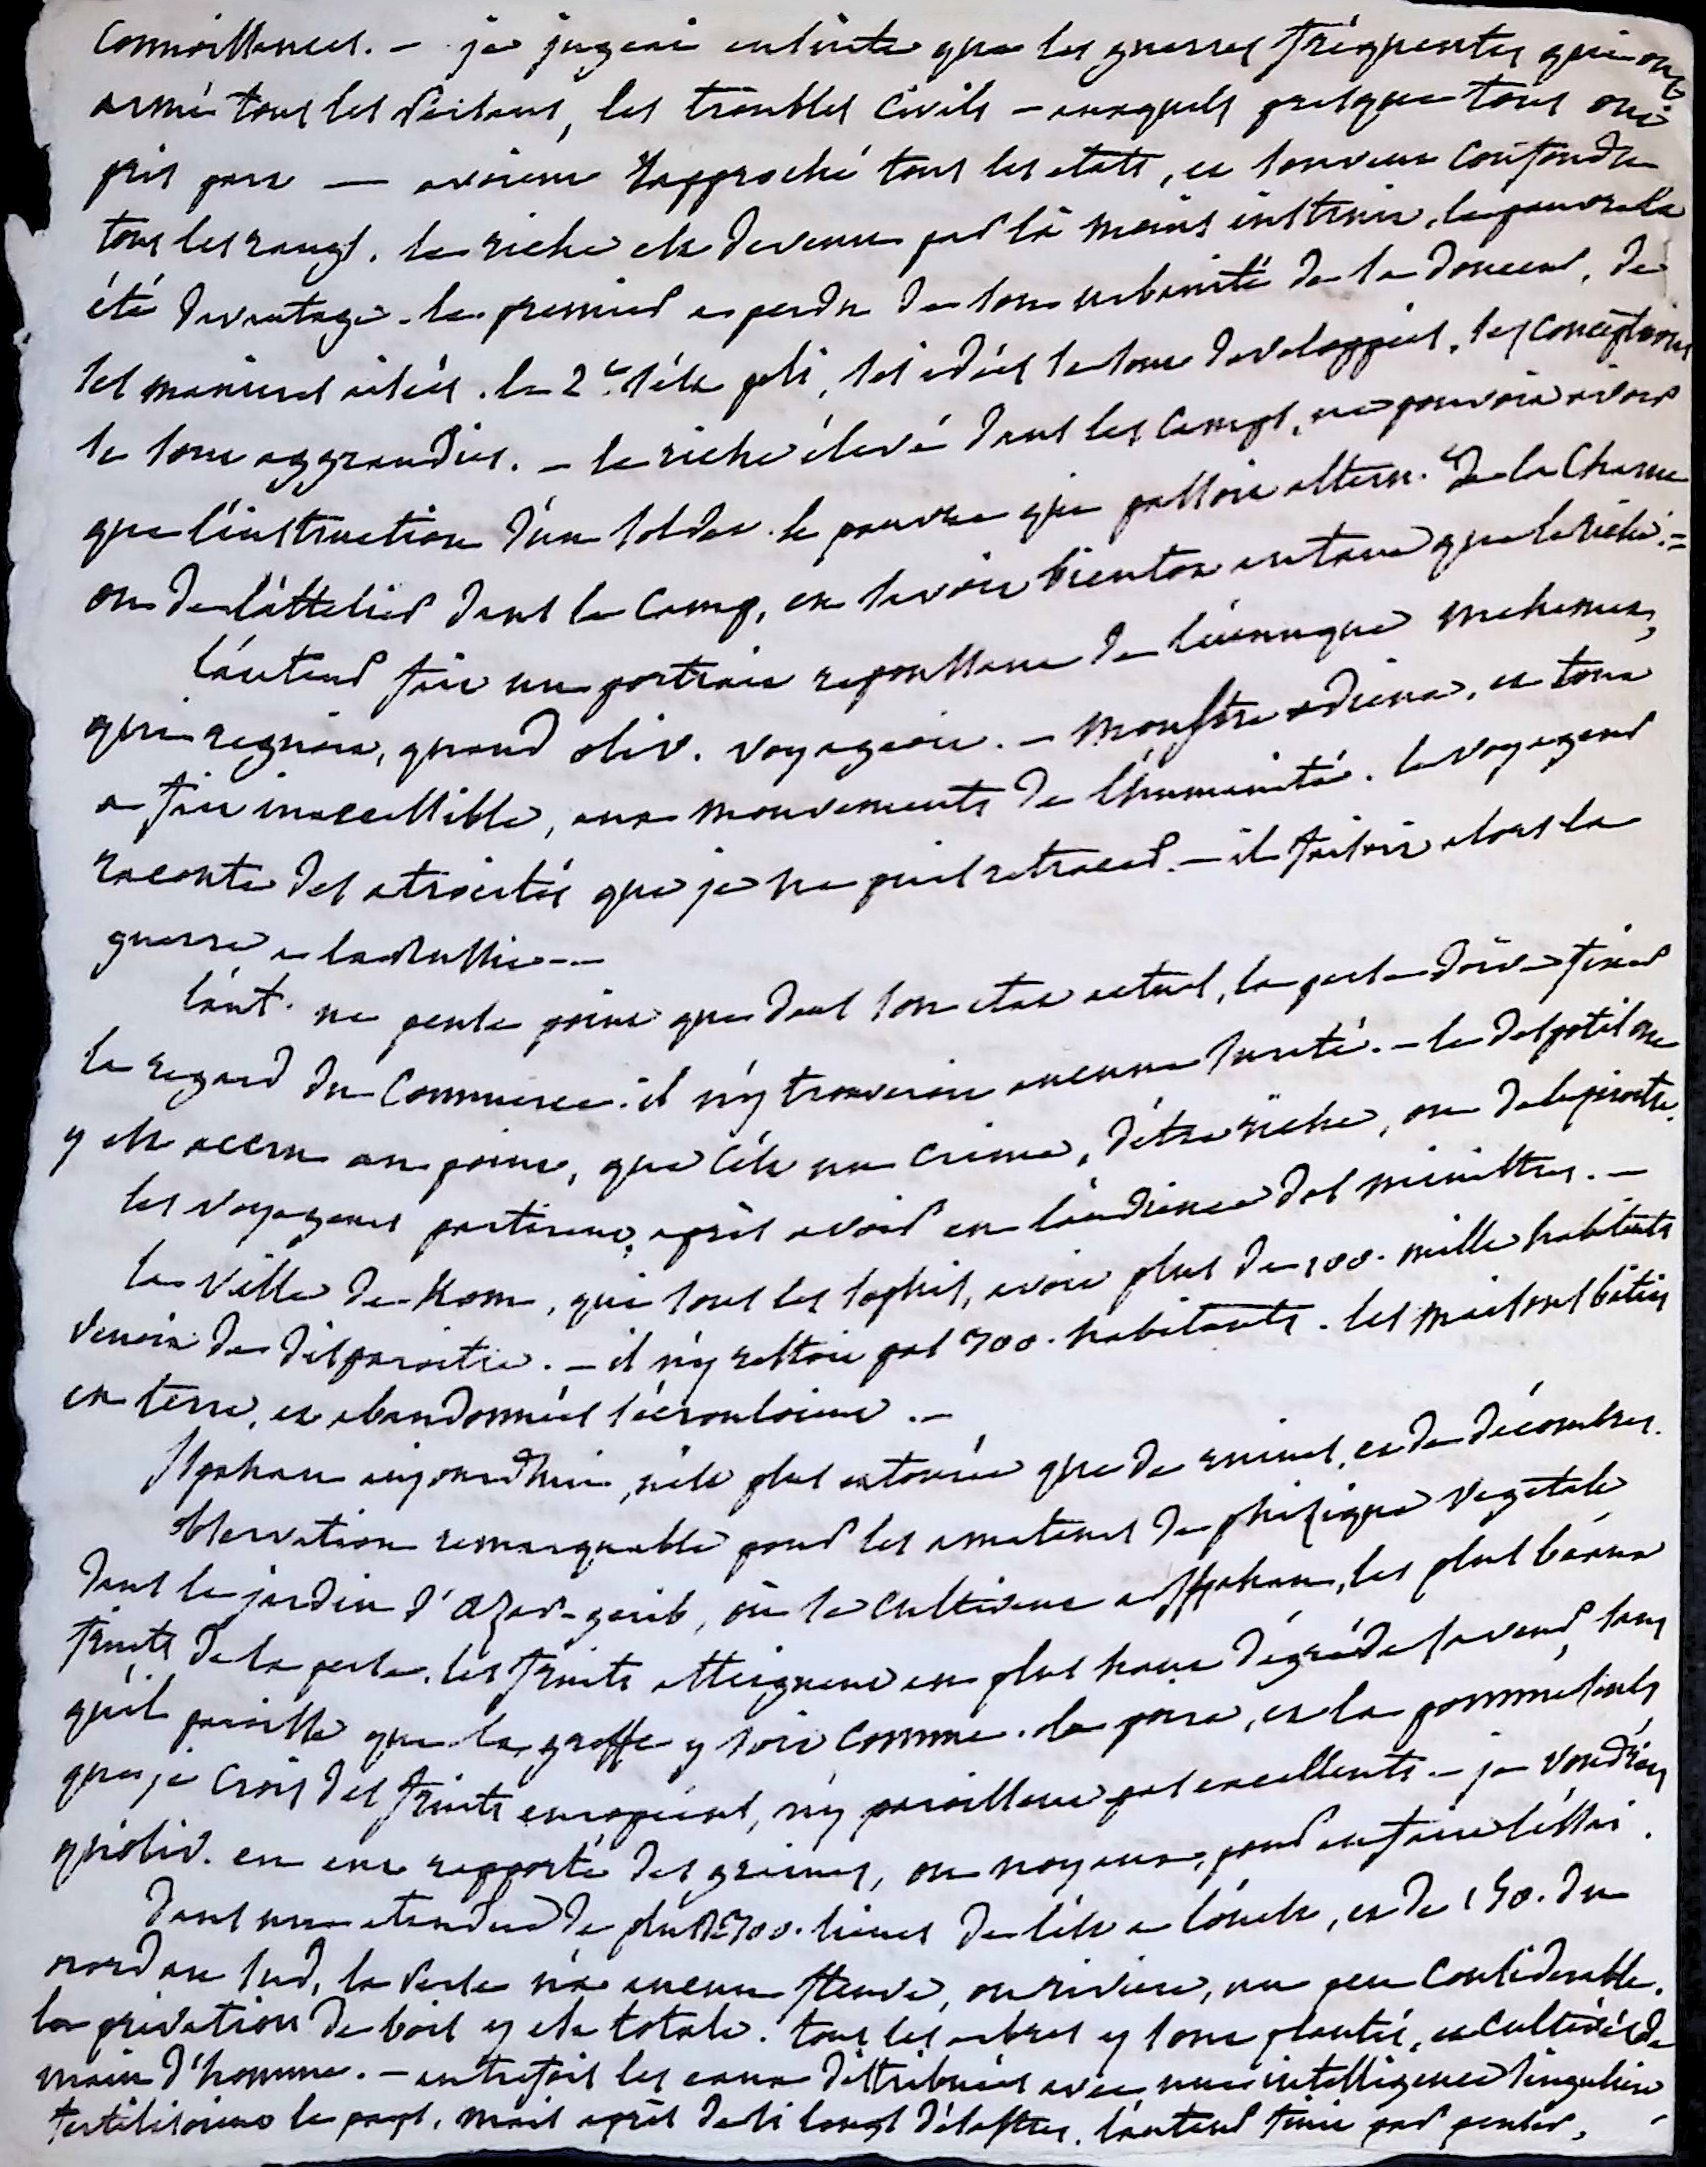 connoissances. – je jugeai ensuite que les guerres fréquentes qui ont
armé tous les Persans, les troubles civils – auxquels presque tous ont
pris part — avoient rapproché tous les etats, et souvent confondu
tous les rangs. le riche est devenu par là moins instruit, le pauvre l'a
été davantage. le premier a perdu de son urbanité de sa douceur, de
ses manieres aisées. le 2e. s'est poli, ses idées se sont developpées, ses conceptions
se sont aggrandies. – le riche élevé dans les camps, ne pouvoit avoir
que l'instruction d'un soldat. le pauvre qui passoit altern. de la charue
ou de l'attelier dans le camp, en savoit bientot autant que le riche. =
l'auteur fait un portrait repoussant de l'eunuque mehemet,
qui regnoit, quand oliv. voyageoit. – monstre odieux, et tout
a fait inaccessible, aux mouvements de l'humanité. le voyageur
raconte des atrocités que je ne puis retracer. – il faisoit alors la
guerre a la Russie --
l'aut. ne pense point que dans son etat actuel, la perse doive fixer
le regard du commerce. il n'y trouveroit aucune sureté. – le despotisme
y est accru au point, que c'est un crime, d'être riche, ou de le paroitre.
les voyageurs partirent, après avoir eu l'audience des ministres. –
la ville de Kom, qui sous les sophis, avoit plus de 100. mille habitants
venoit de disparoitre. – il n'y restoit pas 300. habitants. les maisons bâties
en terre, et abandonnées s'écrouloient. –
Ispahan aujourdhui, n'est plus entourée que de ruines, et de décombres.
observation remarquable pour les amateurs de phisique vegetale
dans le jardin d'azar-gerib, où se cultivent a Ispahan, les plus beaux
fruits de la perse. les fruits atteignent au plus haut dégré de saveur, sans
qu'il paroisse que la greffe y soit connue. la poire, et la pomme seuls
que je crois des fruits européens, n'y paroissent pas excellents – je voudrois
qu'oliv. en eut rapporté des graines, ou noyaux, pour en faire l'essai.
dans une etendue de plus de 300. lieues de l'est a l'ouest, et de 150. du
nord au sud, la Perse n'a aucun fleuve, ou riviere, un peu considerable.
la privation de bois y est totale. tous les arbres y sont plantés, et cultivés de
main d'homme. – autrefois les eaux distribuées avec une intelligence singuliere,
fertilisoient le pays. mais après de si longs désastres. l'auteur finit par penser,